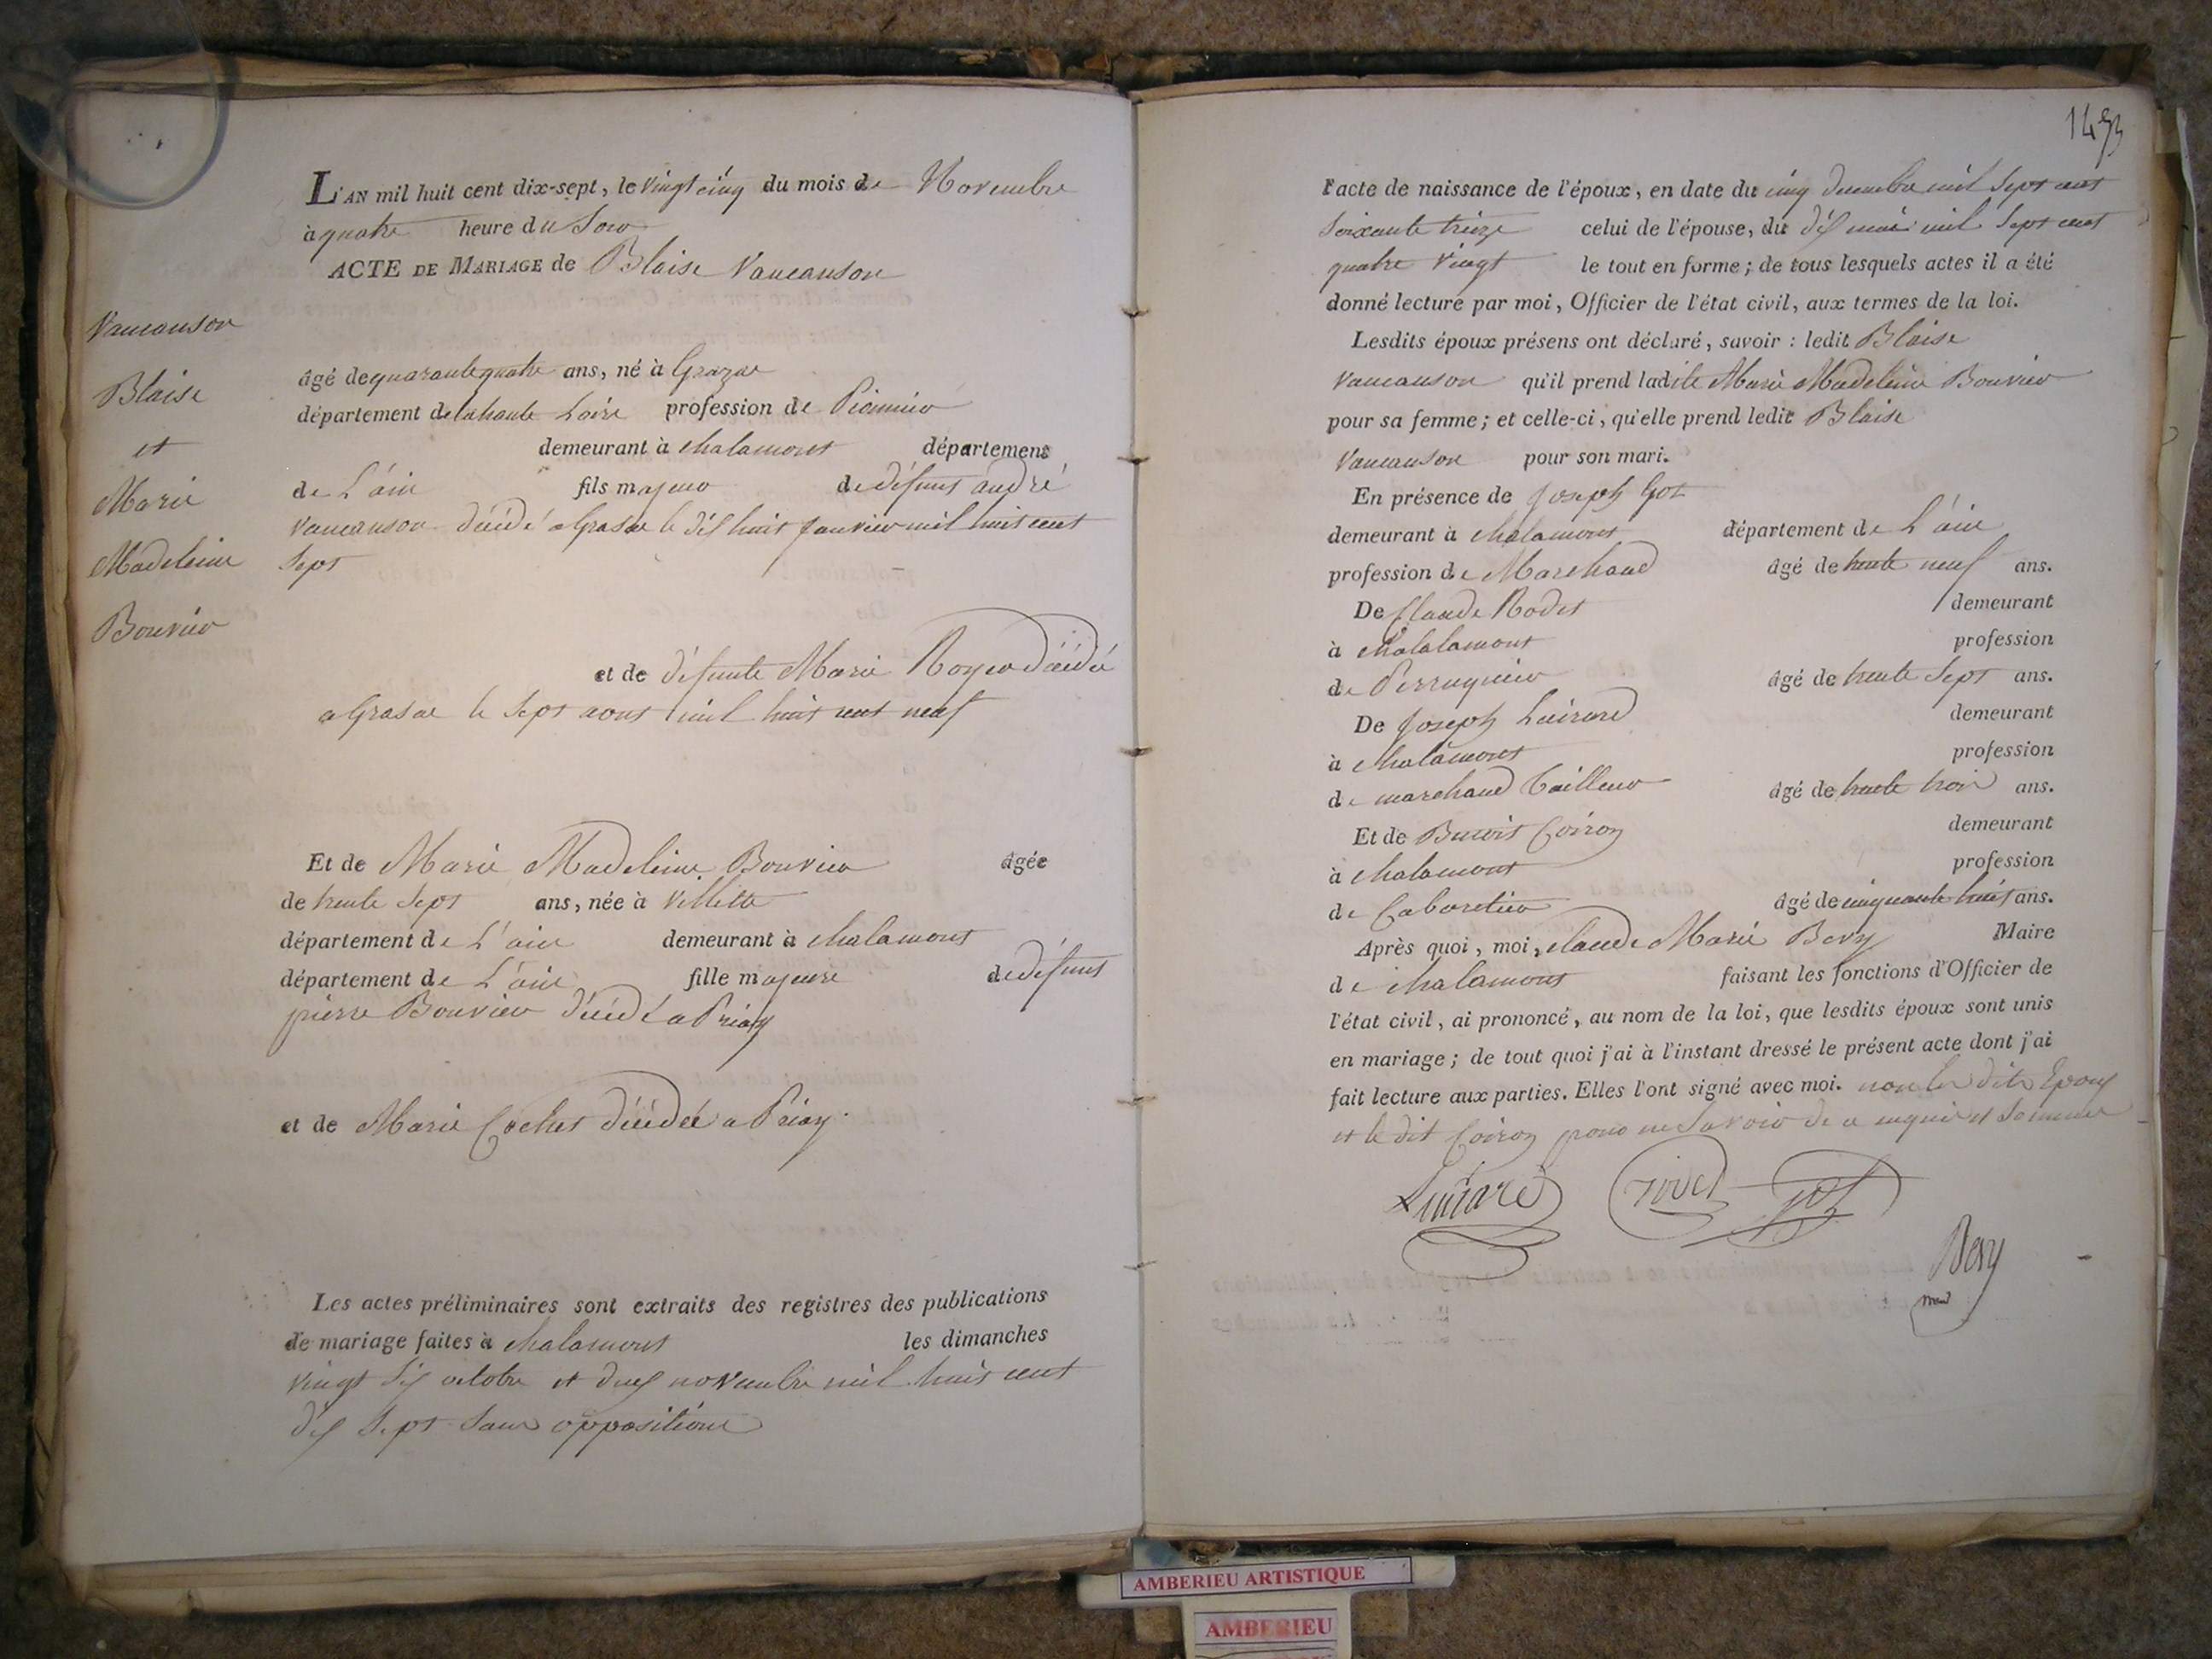 L'AN mil huit cent dix-sept, le vingt cinq du mois de Novembre
à quatre heure du Soir
ACTE DE MARIAGE de Blaise Vaucanson
Vaucanson
Blaise
et
Marie
Madeleine
Bouvier
âgé de quarante quatre ans, né à Grazac
département de la haute Loire profession de Pionnier
demeurant à chalamont département
de L'ain fils majeur de défunt andré
Vaucanson décédé a Grasac le dix huit janvier mil huit cent
Sept
et de défunte Marie Royer décédée
a Grasac le Sept aout mil huit cent neuf
Et de Marie Madeleine Bouvier âgée
de trente Sept ans, née à Villette
département de L'ain demeurant à chalamont
département de L'ain fille majeure de défunt
pierre Bouvier décédé a Priay
et de Marie Cochet décédée a Priay.
Les actes préliminaires sont extraits des registres des publications
de mariage faites à chalamont les dimanches
vingt six octobre et deux novembre mil huit cent
dix Sept Sans oppositions
1453
l'acte de naissance de l'époux, en date du cinq decembre mil Sept cent
Soixante treize celui de l'épouse, du dix mai mil Sept cent
quatre vingt le tout en forme ; de tous lesquels actes il a été
donné lecture par moi, Officier de l'état civil, aux termes de la loi.
Lesdits époux présens ont déclaré, savoir : ledit Blaise
Vaucanson qu'il prend ladite Marie Madeleine Bouvier
pour sa femme ; et celle-ci, qu'elle prend ledit Blaise
Vaucanson pour son mari.
En présence de Joseph Got
demeurant à chalamont département de L'ain
profession de Marchand âgé de trente neuf ans.
De Claude Rodet demeurant
à chalalamont profession
de Perruquier âgé de trente Sept ans.
De Joseph demeurant
à chalamont profession
de marchand Tailleur âgé de trente trois ans.
Et de Benoit Coiron demeurant
à chalamont profession
de Cabaretier âgé de cinquante huit ans.
Après quoi, moi, claude Marie Bevy Maire
de chalamont faisant les fonctions d'Officier de
l'état civil, ai prononcé, au nom de la loi, que lesdits époux sont unis
en mariage ; de tout quoi j'ai à l'instant dressé le présent acte dont j'ai
fait lecture aux parties. Elles l'ont signé avec moi. non les dits Epoux
et le dit Coiron pour ne Savoir de ce enquis et Sommés
Got
Bevy
AMBERIEU ARTISTIQUE
AMBERIEU